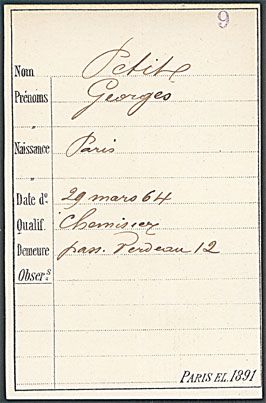 9
Nom Petit
Prénoms Georges
"
Naissance Paris
"
Date d° 29 mars 64
Qualif. Chemisier
Demeure pass. Verdeau 12
Obser.s
PARIS EL. 1891